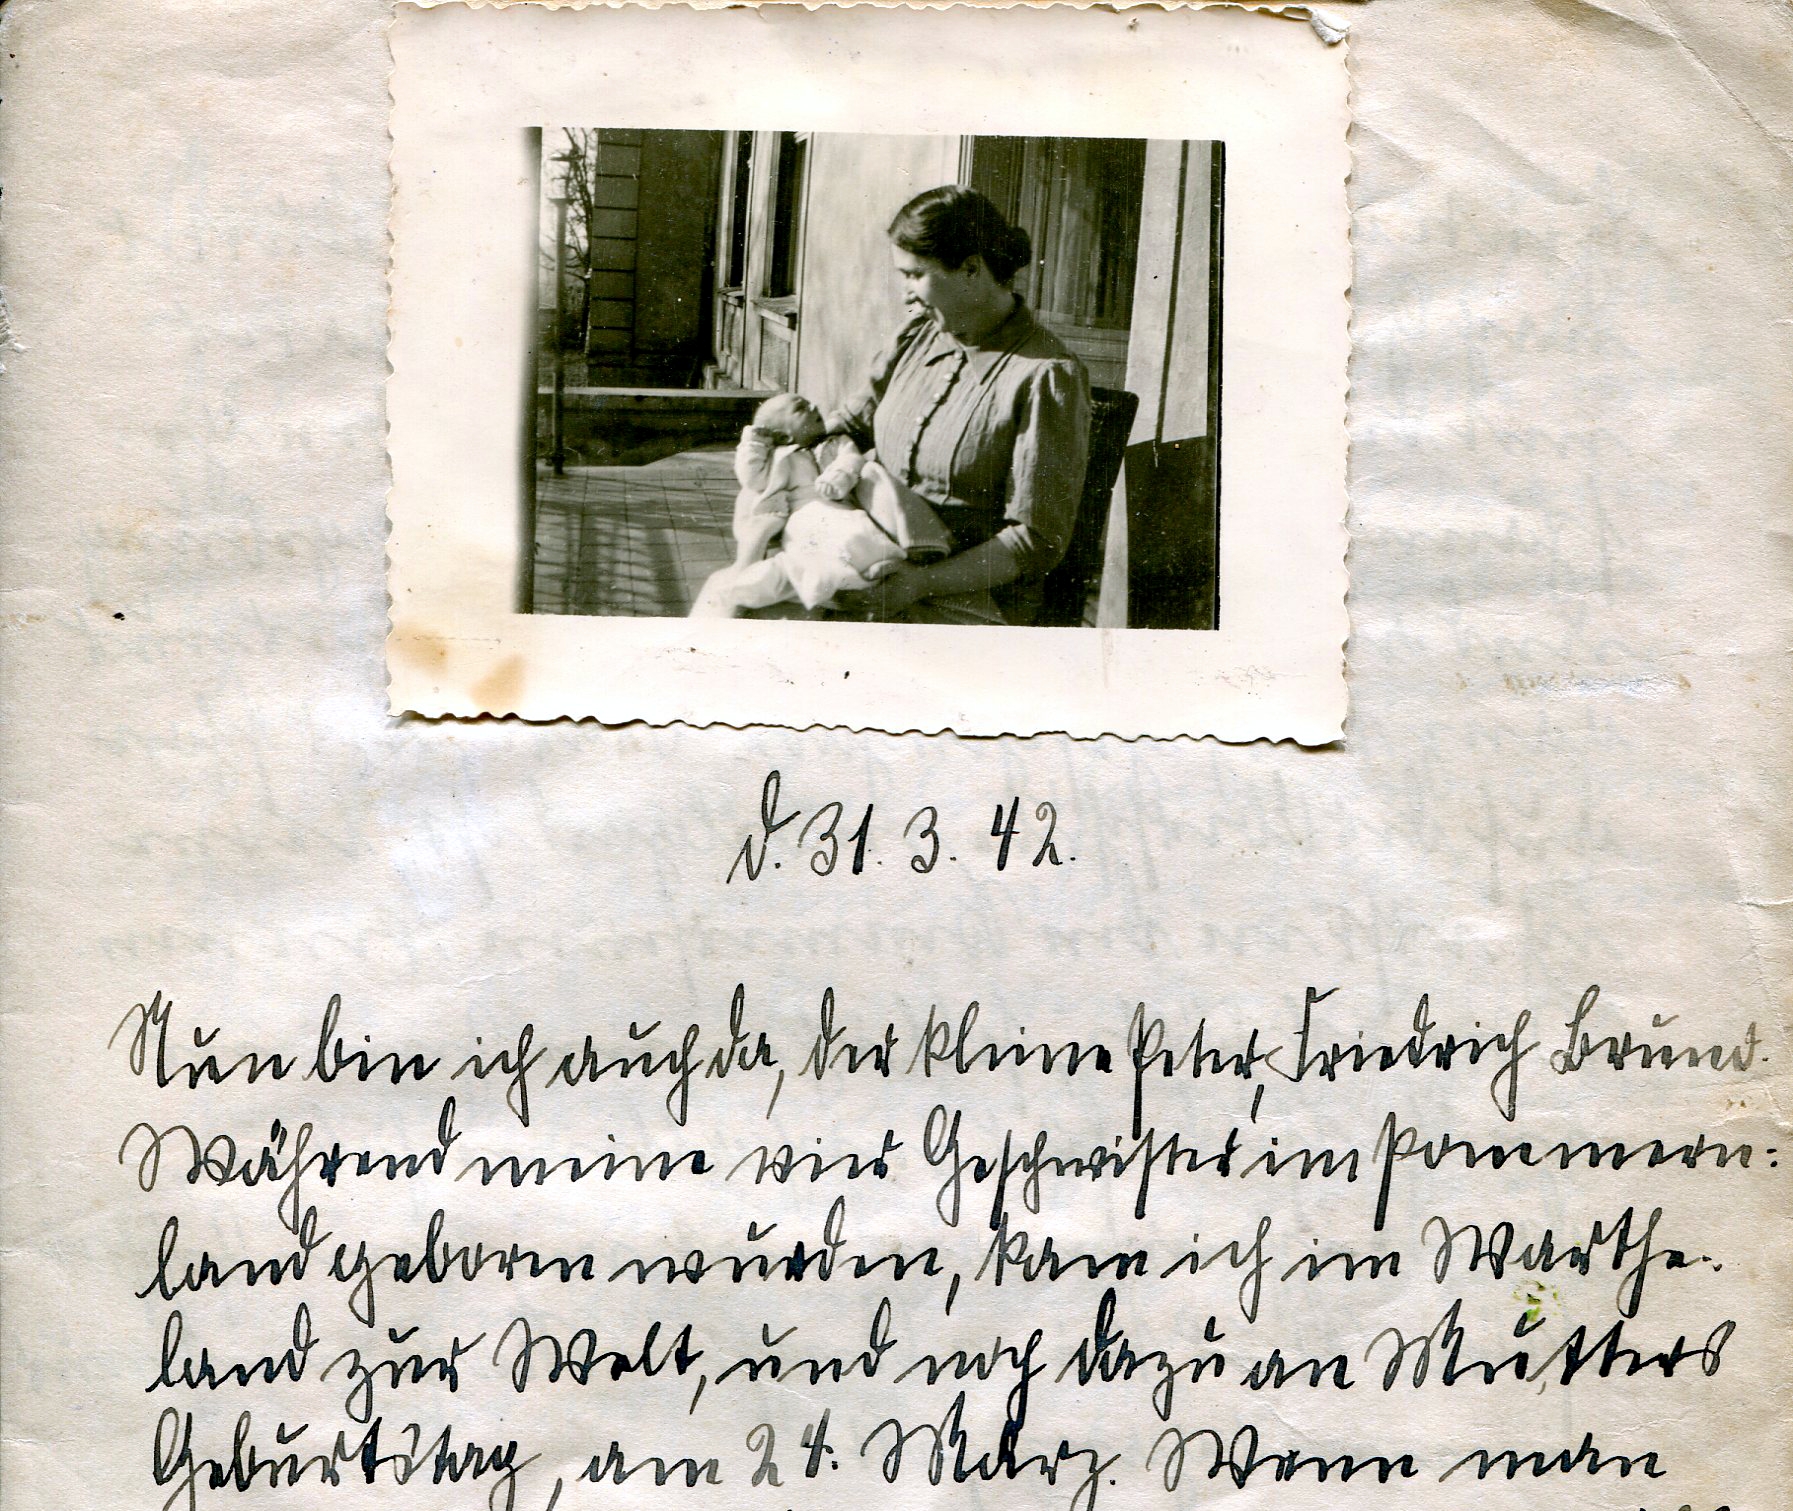 d. 31. 3. 42.
Nun bin ich auch da, der kleine Peter, Friedrich Bruno.
Während meine vier Geschwister im Pommern:
land geboren wurden, kam ich im Warthe:
land zur Welt, und noch dazu an Mutters
Geburtstag, am 24. März. Wenn man